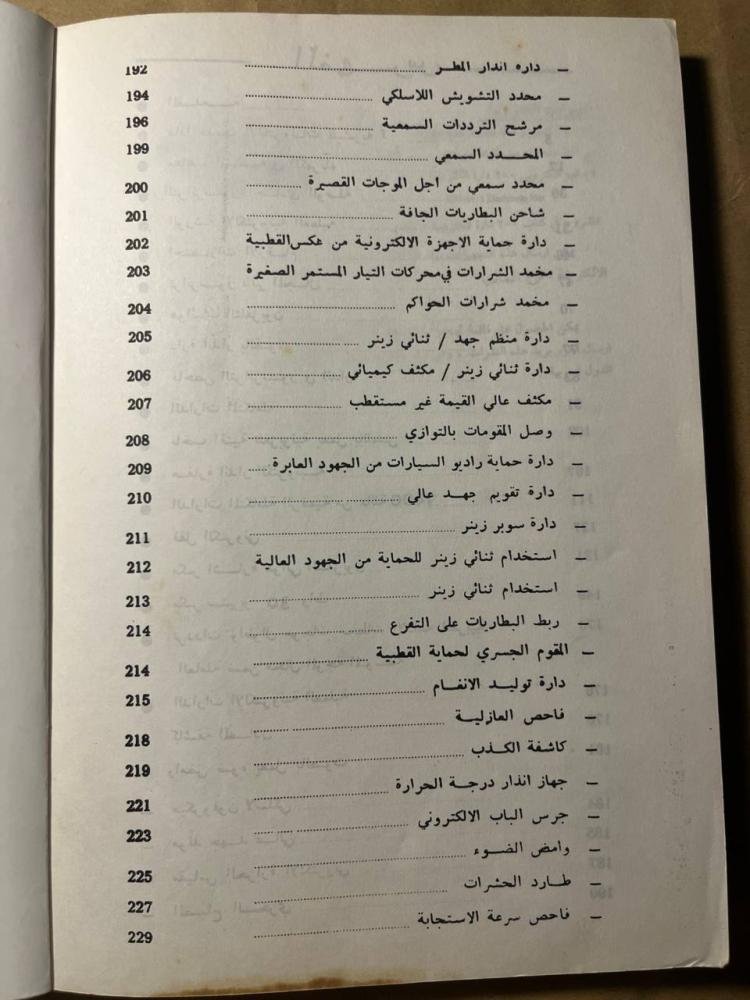 – دارة انذار المطر ........ 192
– محدد التشويش اللاسلكي ........ 194
– مرشح الترددات السمعية ........ 196
– المحدد السمعي ........ 199
– محدد سمعي من اجل الموجات القصيرة ........ 200
– شاحن البطاريات الجافة ........ 201
– دارة حماية الاجهزة الالكترونية من عكس القطبية 202
– مخمد الشرارات في محركات التيار المستمر الصغيرة 203
– مخمد شرارات الحواكم ........ 204
– دارة منظم جهد / ثنائي زينر ........ 205
– دارة ثنائي زينر / مكثف كيميائي ........ 206
– مكثف عالي القيمة غير مستقطب ........ 207
– وصل المقومات بالتوازي ........ 208
– دارة حماية راديو السيارات من الجهود العابرة ..... 209
– دارة تقويم جهد عالي ........ 210
– دارة سوبر زينر ........ 211
– استخدام ثنائي زينر للحماية من الجهود العالية 212
– استخدام ثنائي زينر ........ 213
– ربط البطاريات على التفرع ........ 214
– المقوم الجسري لحماية القطبية ........ 214
– دارة توليد الانغام ........ 215
– فاحص العازلية ........ 218
– كاشفة الكذب ........ 219
– جهاز انذار درجة الحرارة ........ 221
– جرس الباب الالكتروني ........ 223
– وامض الضوء ........ 225
– طارد الحشرات ........ 227
– فاحص سرعة الاستجابة ........ 229